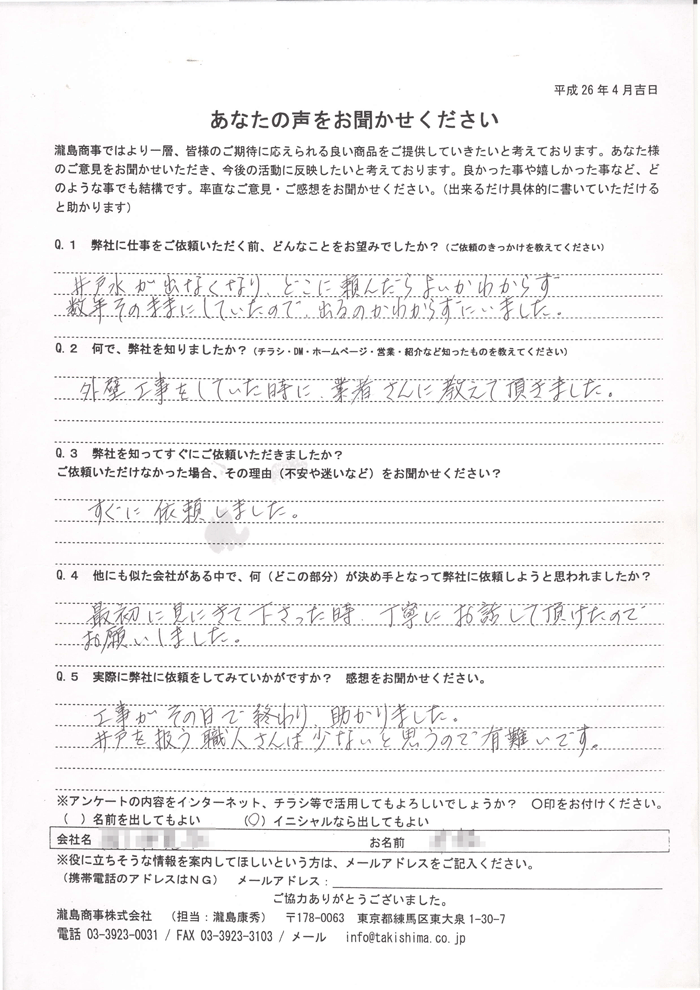 平成26年4月吉日
あなたの声をお聞かせください
瀧島商事ではより一層、皆様のご期待に応えられる良い商品をご提供していきたいと考えております。あなた様
のご意見をお聞かせいただき、今後の活動に反映したいと考えております。良かった事や嬉しかった事など、ど
のような事でも結構です。率直なご意見・ご感想をお聞かせください。（出来るだけ具体的に書いていただける
と助かります）
Q.1 弊社に仕事をご依頼いただく前、どんなことをお望みでしたか？（ご依頼のきっかけを教えてください）
井戸水が出なくなり、どこに頼んだらよいかわからず
数年そのままにしていたので、出るのかわからずにいました。
Q.2 何で、弊社を知りましたか？（チラシ・DM・ホームページ・営業・紹介など知ったものを教えてください）
外壁工事をしていた時に、業者さんに教えて頂きました。
Q.3 弊社を知ってすぐにご依頼いただきましたか？
ご依頼いただけなかった場合、その理由（不安や迷いなど）をお聞かせください？
すぐに依頼しました。
Q.4 他にも似た会社がある中で、何（どこの部分）が決め手となって弊社に依頼しようと思われましたか？
最初に見にきて下さった時、丁寧にお話して頂けたので
お願いしました。
Q.5 実際に弊社に依頼をしてみていかがですか？ 感想をお聞かせください。
工事がその日で終わり、助かりました。
井戸を扱う職人さんは少ないと思うので有難いです。
※アンケートの内容をインターネット、チラシ等で活用してもよろしいでしょうか？ 〇印をお付けください。
（ ）名前を出してもよい （〇）イニシャルなら出してもよい
会社名 お名前
※役に立ちそうな情報を案内してほしいという方は、メールアドレスをご記入ください。
（携帯電話のアドレスはＮＧ） メールアドレス：
ご協力ありがとうございました。
瀧島商事株式会社 （担当：瀧島康秀） 〒178-0063 東京都練馬区東大泉1-30-7
電話 03-3923-0031 / FAX 03-3923-3103 / メール info@takishima.co.jp